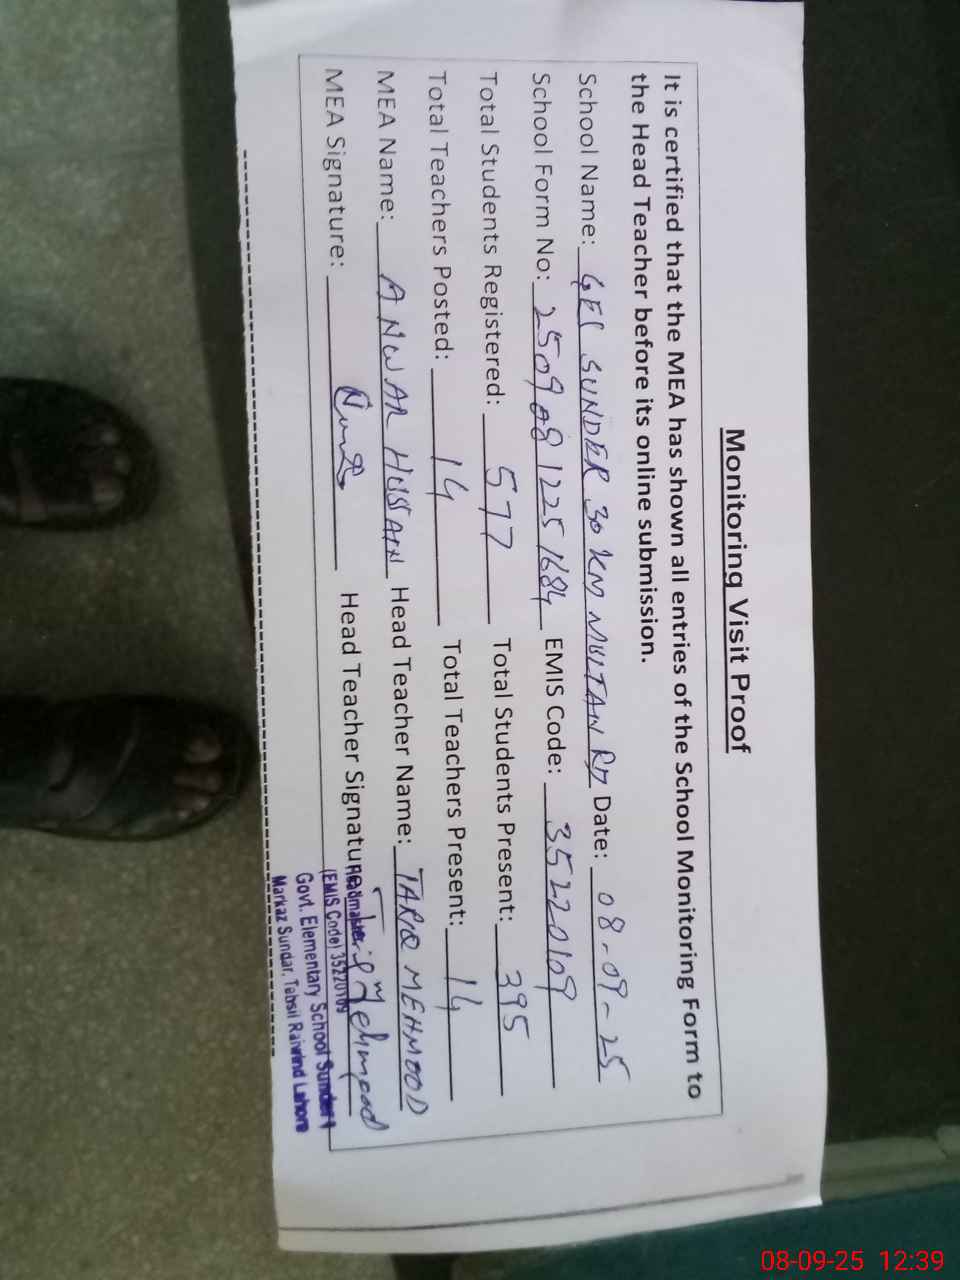 Monitoring Visit Proof
It is certified that the MEA has shown all entries of the School Monitoring Form to
the Head Teacher before its online submission.
School Name: GES SUNDER 30 KM MULTAN RD Date: 08-09-25
School Form No: 250908 12251684 EMIS Code: 35220109
Total Students Registered: 577 Total Students Present: 395
Total Teachers Posted: 14 Total Teachers Present: 14
MEA Name: ANWAR HUSSAIN Head Teacher Name: TARIQ MEHMOOD
MEA Signature: Head Teacher Signature: Tariq Mehmood
Headmaster
(EMIS Code) 35220109
Govt. Elementary School Sunder
Markaz Sundar, Tehsil Raiwind Lahore
08-09-25 12:39